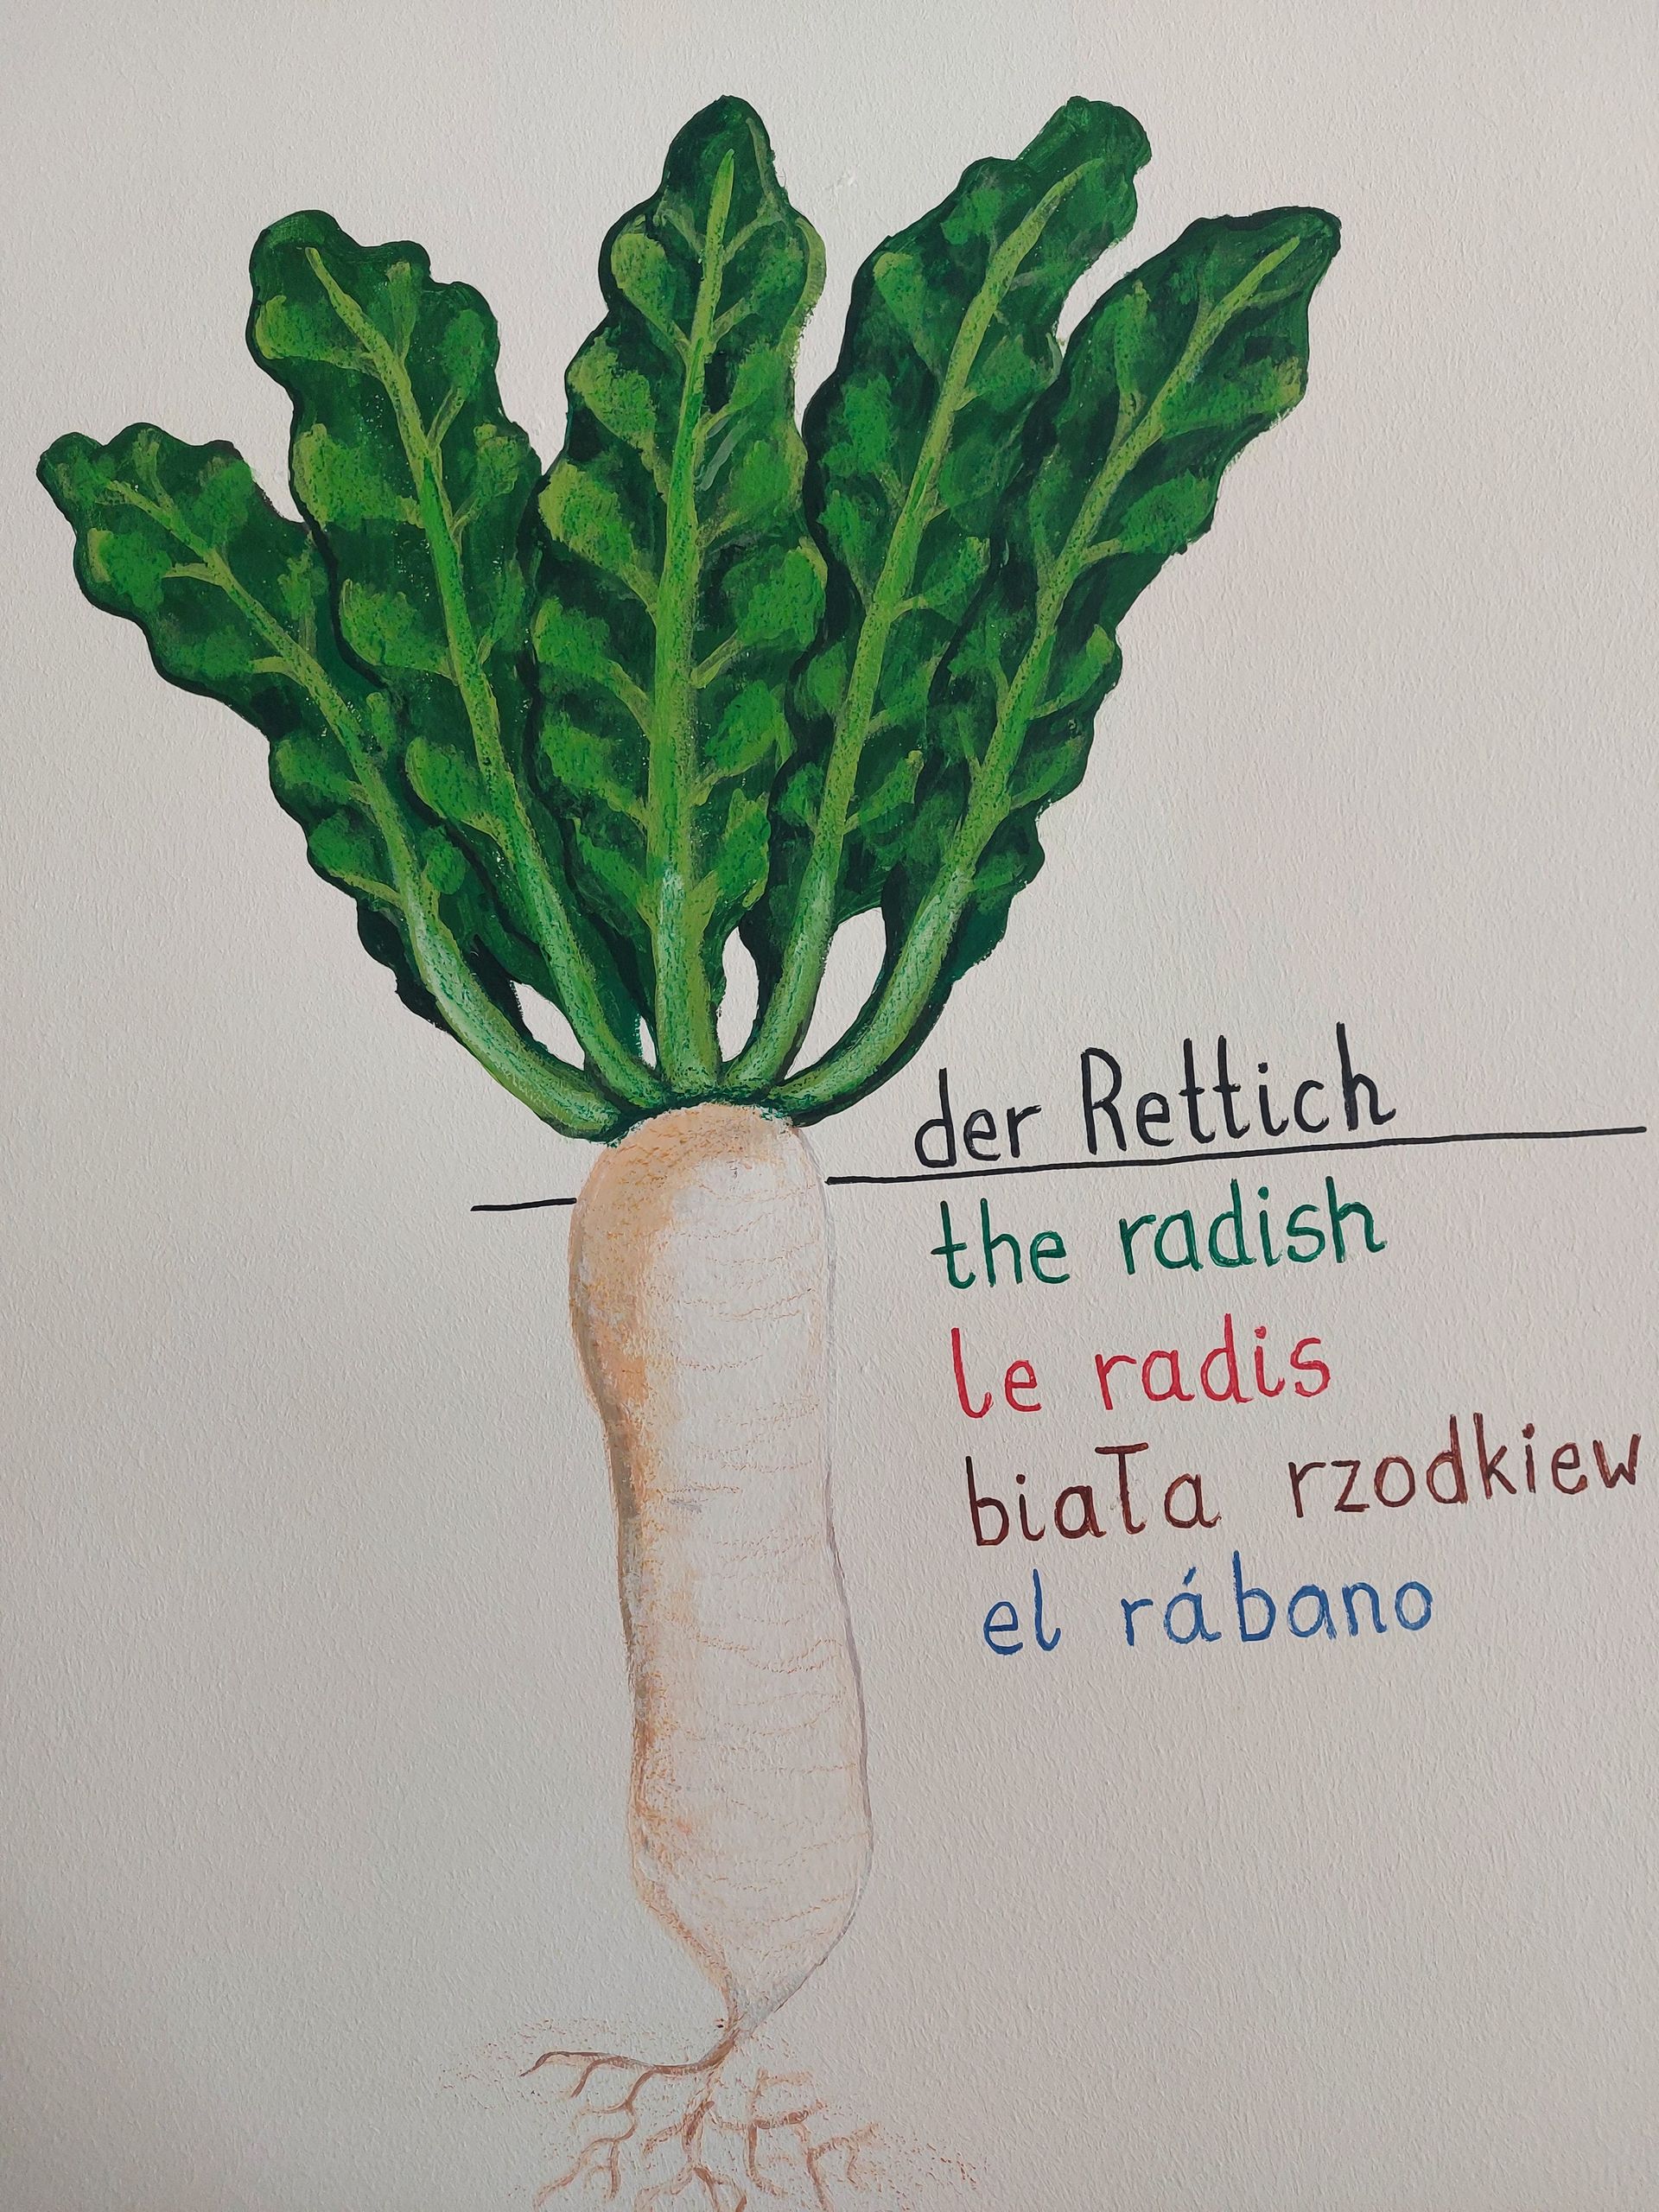 der Rettich
the radish
le radis
biała rzodkiew
el rábano